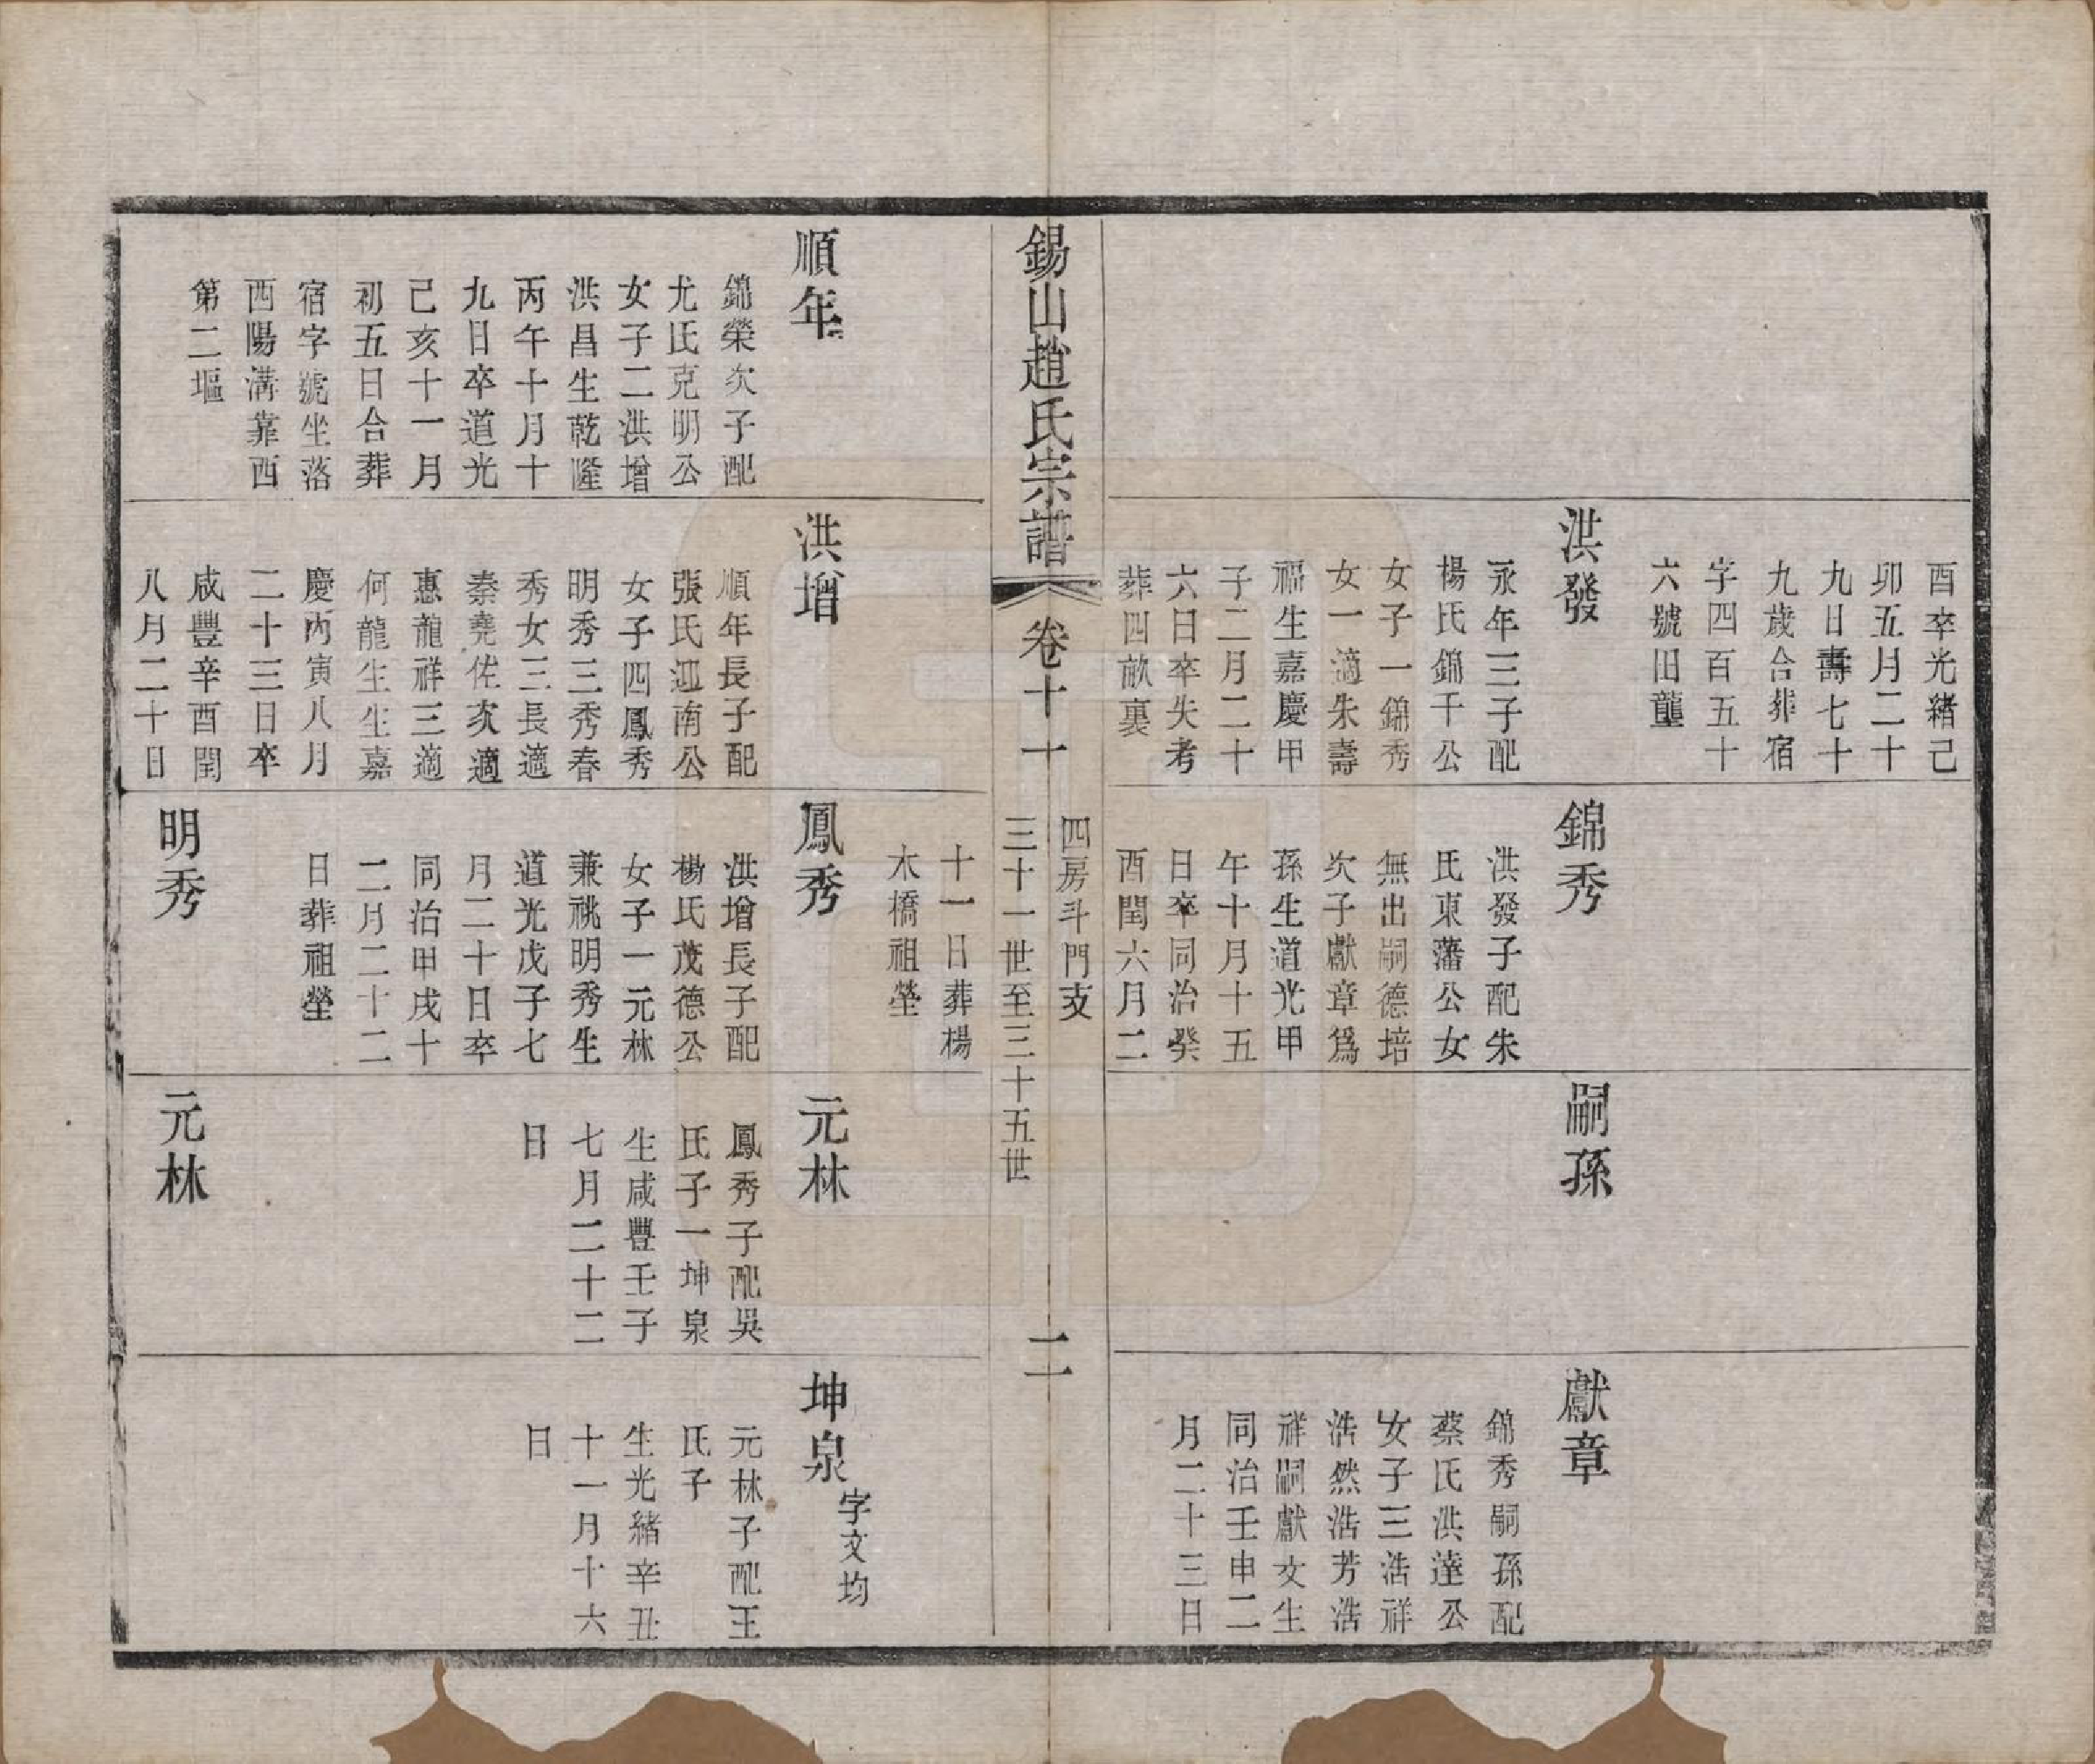 酉卒光緒己
卯五月二十
九日壽七十
九歲合葬宿
字四百五十
六號田壟
洪發
永年三子配
楊氏錦千公
女子一錦秀
女一適朱壽
福生嘉慶甲
子二月二十
六日卒失考
葬四畝裏
錦秀
洪發子配朱
氏東藩公女
無出嗣德培
次子獻章爲
孫生道光甲
午十月十五
日卒同治癸
酉閏六月二
十一日葬楊
木橋祖塋
嗣孫
獻章
錦秀嗣孫配
蔡氏洪達公
女子三浩祥
浩然浩芳浩
祥嗣獻文生
同治壬申二
月二十三日
錫山趙氏宗譜
卷十一
四房斗門支
三十一世至三十五世
二
順年
錦榮次子配
尤氏克明公
女子二洪增
洪昌生乾隆
丙午十月十
九日卒道光
己亥十一月
初五日合葬
宿字號坐落
西陽溝靠西
第二塸
洪增
順年長子配
張氏迎南公
女子四鳳秀
明秀三秀春
秀女三長適
秦堯佐次適
惠龍祥三適
何龍生生嘉
慶丙寅八月
二十三日卒
咸豐辛酉閏
八月二十日
鳳秀
洪增長子配
楊氏茂德公
女子一元林
兼祧明秀生
道光戊子七
月二十日卒
同治甲戌十
二月二十二
日葬祖塋
明秀
元林
鳳秀子配吳
氏子一坤泉
生咸豐壬子
七月二十二
日
元林
坤泉
字文均
元林子配王
氏子
生光緒辛丑
十一月十六
日